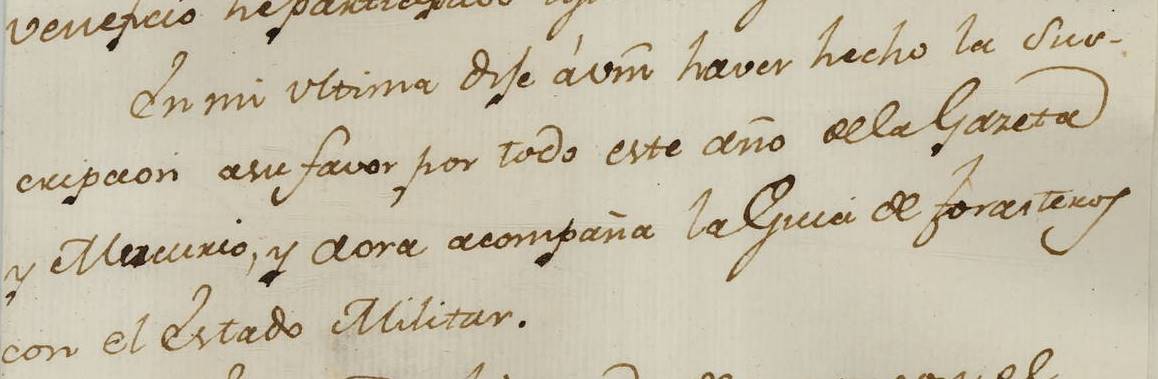 venefcio he participado
En mi ultima dije á vm̃ haver hecho la Sus-
cripcion a su favor por todo este año de la Gazeta
y Mercurio, y aora acompaña la Guia de forasteros
con el Estado Militar.